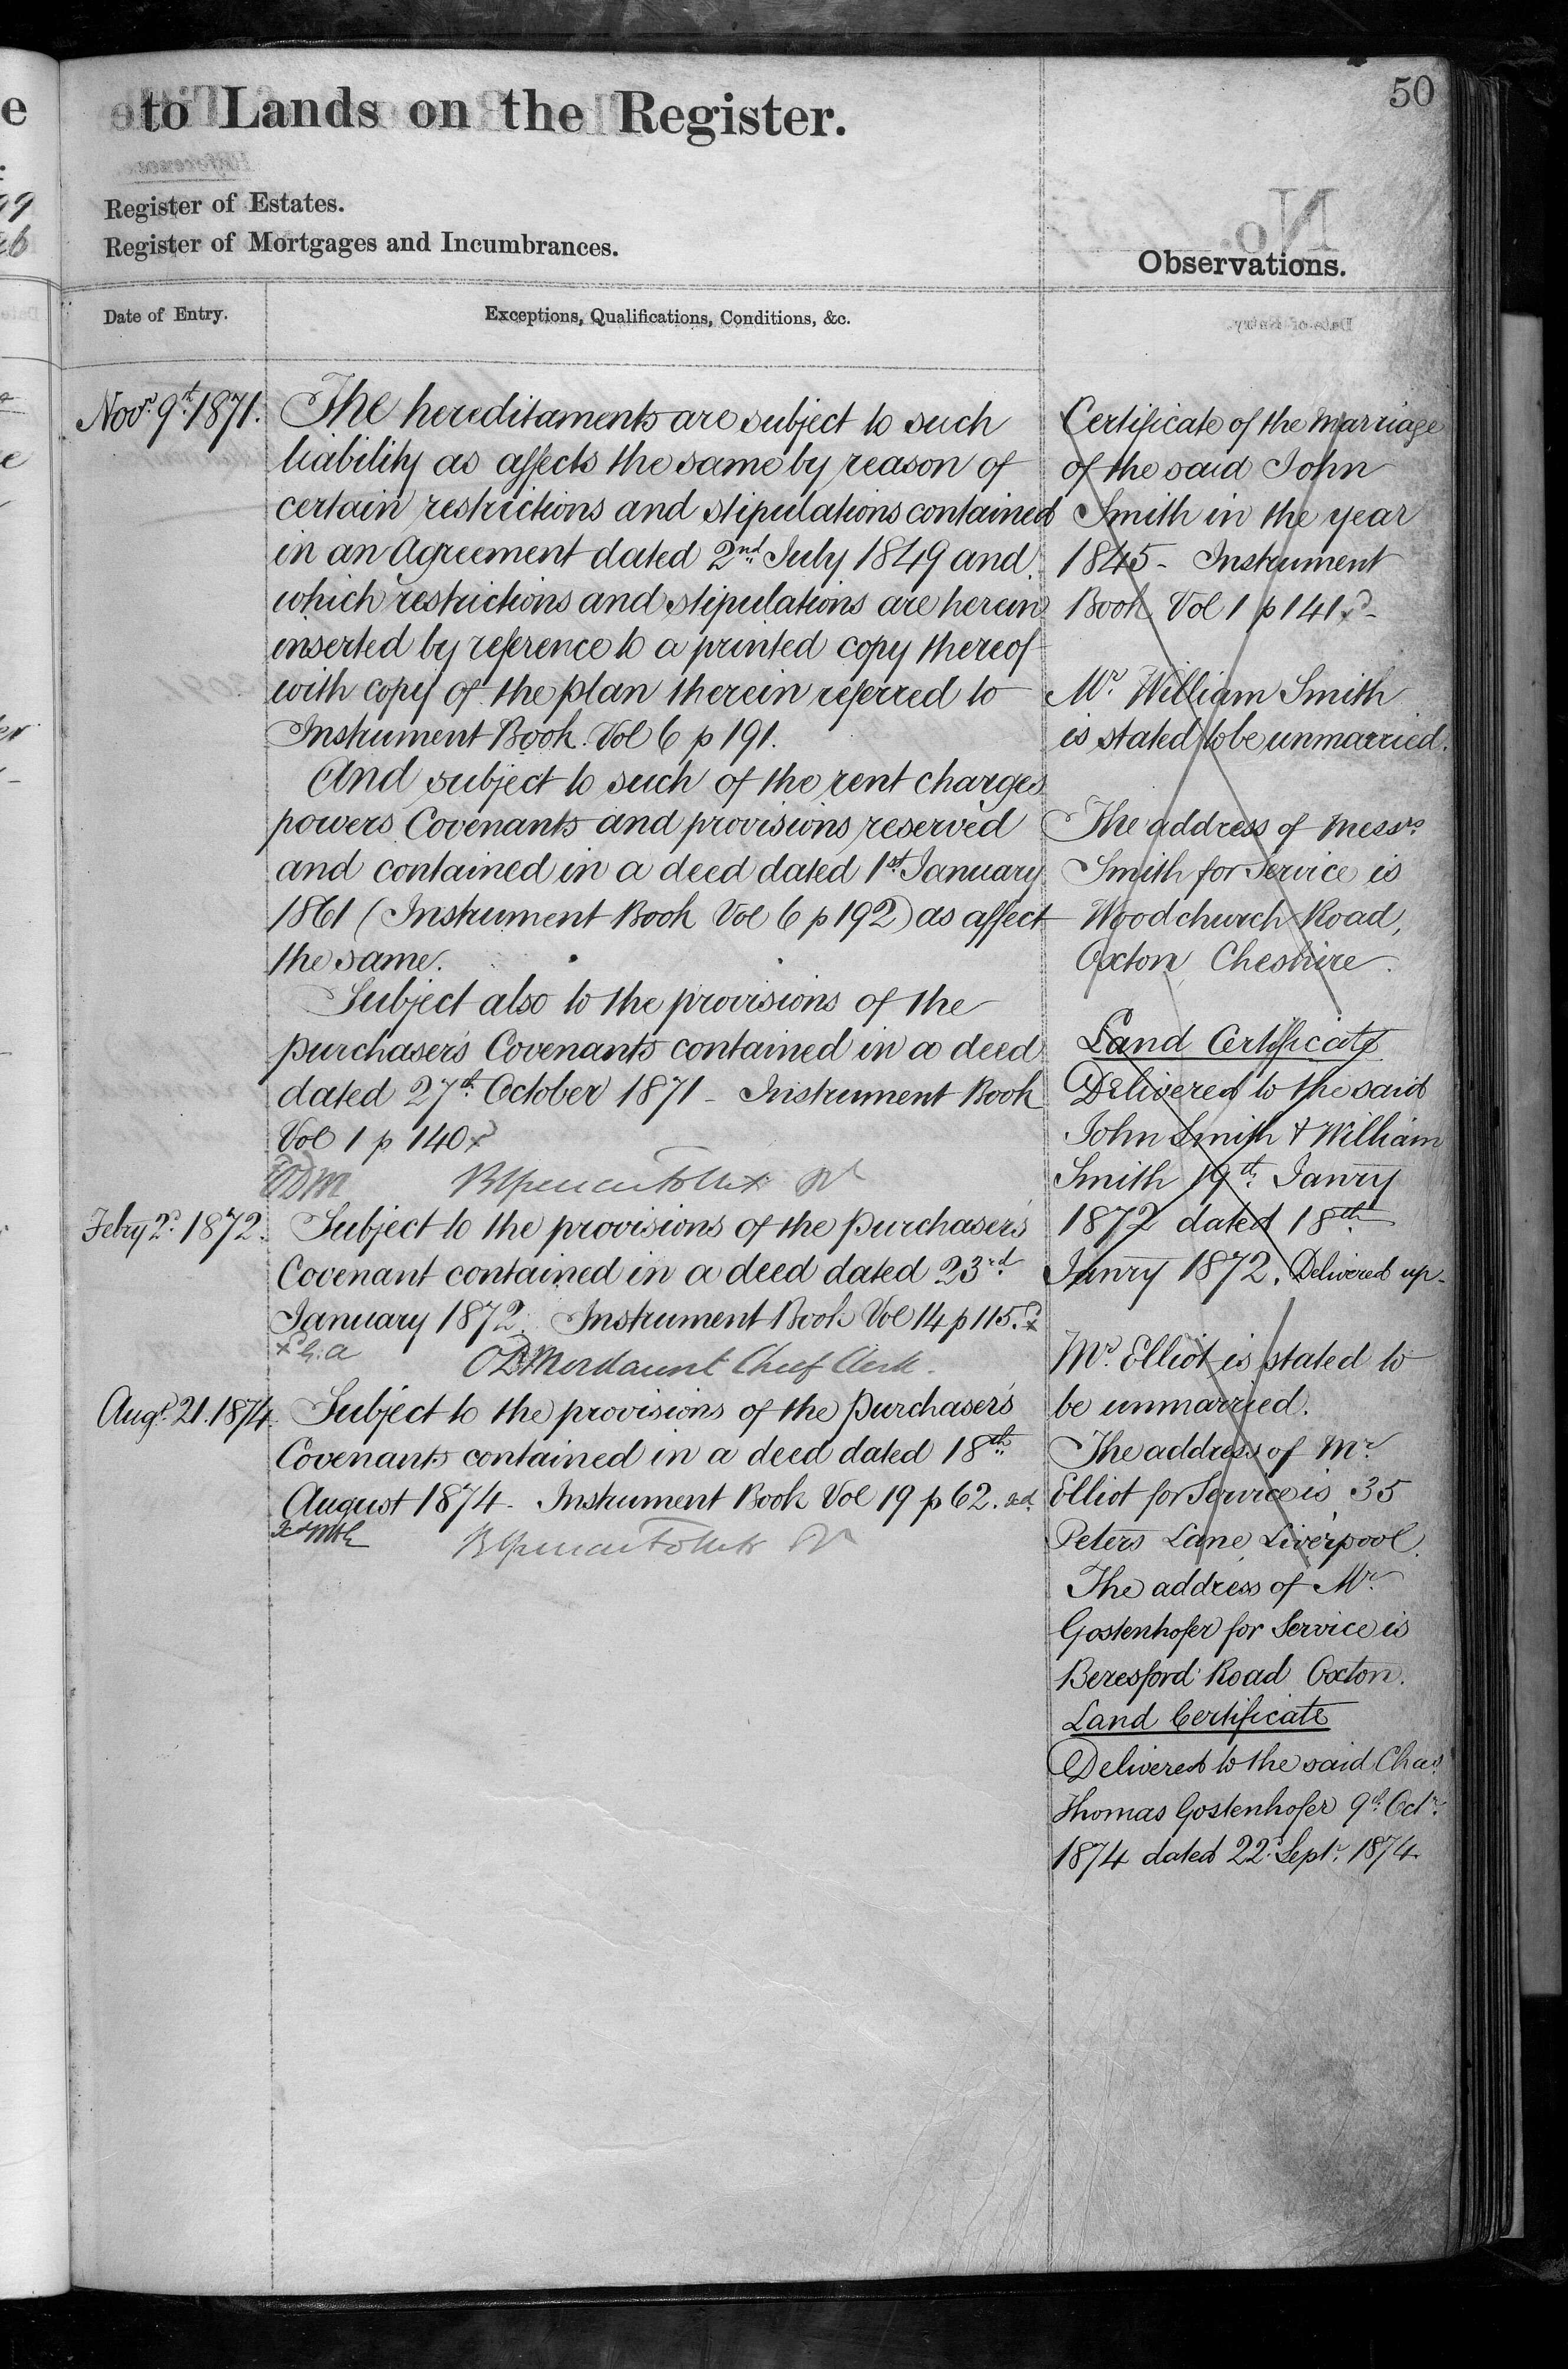 to Lands on the Register.
50
Register of Estates.
Register of Mortgages and Incumbrances.
Observations.
Date of Entry.
Exceptions, Qualifications, Conditions, &c.
Novr. 9th. 1871.
The hereditaments are subject to such
liability as affects the same by reason of
certain restrictions and stipulations contained
in an Agreement dated 2nd July 1849 and
which restrictions and stipulations are herein
inserted by reference to a printed copy thereof
with copy of the plan therein referred to
Instrument Book. Vol 6 p 191.
And subject to such of the rent charges
powers Covenants and provisions reserved
and contained in a deed dated 1st January
1861 (Instrument Book Vol 6 p 192) as affect
the same.
Subject also to the provisions of the
purchaser's Covenants contained in a deed
dated 27th October 1871 - Instrument Book
Vol 1 p 140
ODM
Feby 2d. 1872.
Subject to the provisions of the purchaser's
Covenant contained in a deed dated 23rd
January 1872. Instrument Book Vol 14 p 115.
ODMordaunt Chief Clerk.
Augt. 21. 1874.
Subject to the provisions of the purchaser's
Covenants contained in a deed dated 18th
August 1874 - Instrument Book Vol 19 p 62.
Certificate of the marriage
of the said John
Smith in the year
1845 - Instrument
Book Vol 1 p 141
Mr. William Smith
is stated to be unmarried.
The address of Messrs
Smith for Service is
Woodchurch Road,
Oxton Cheshire.
Land Certificate
Delivered to the said
John Smith & William
Smith 19th. Janry
1872 dated 18th
Janry 1872. Delivered up -
Mr. Elliot is stated to
be unmarried.
The address of Mr
Elliot for Service is 35
Peters Lane Liverpool.
The address of Mr.
Gostenhofer for Service is
Beresford Road Oxton.
Land Certificate
Delivered to the said Chas.
Thomas Gostenhofer 9th Octr.
1874 dated 22d. Septr. 1874.